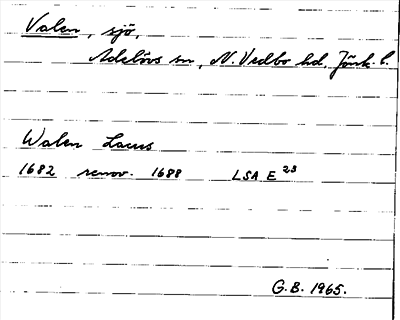 Valen, sjö,
Adelövs sn, N. Vedbo hd, Jönk. l.
Walen Lacus
1682 renov. 1688 LSA E 23
G.B. 1965.